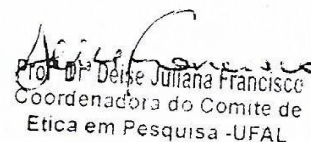 Profª Drª Deise Juliana Francisco
Coordenadora do Comitê de
Etica em Pesquisa -UFAL